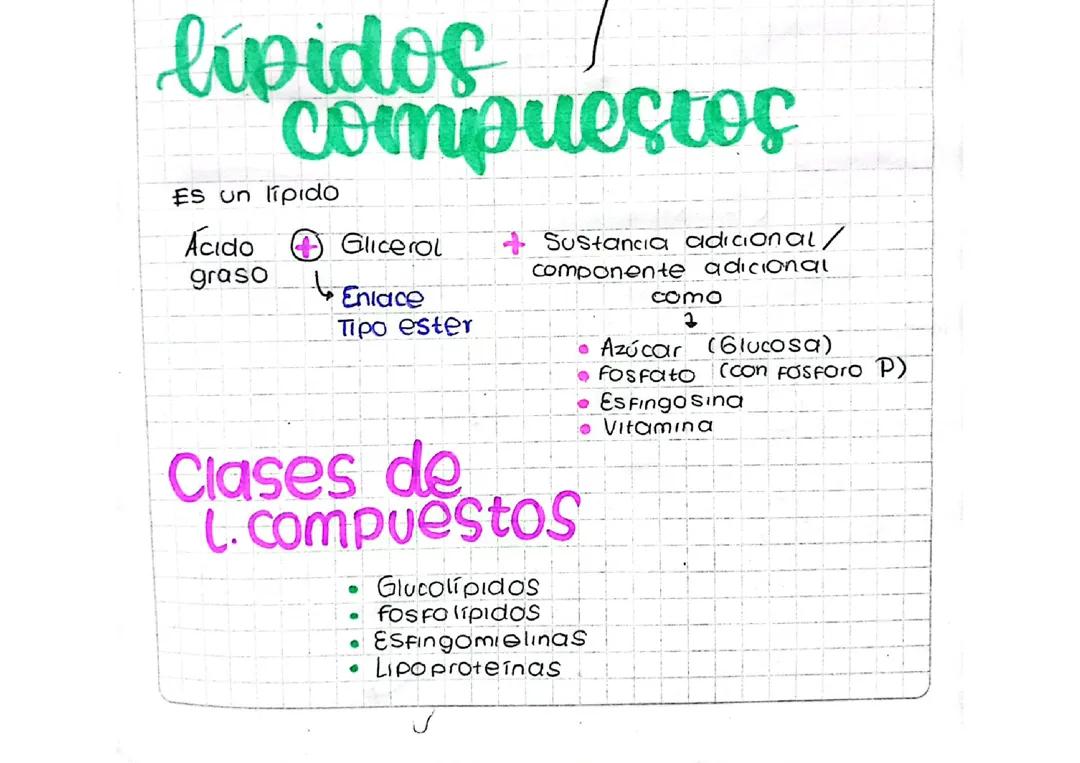 lípidos
compuestos
Es un lípido
Ácido + Glicerol + Sustancia adicional/
graso componente adicional
Enlace como
Tipo ester
• Azúcar (Glucosa)
• Fosfato (con fósforo P)
• Esfingosina
• Vitamina
Clases de
L. compuestos
• Glucolípidos
• Fosfolípidos
• Esfingomielinas
• Lipoproteínas